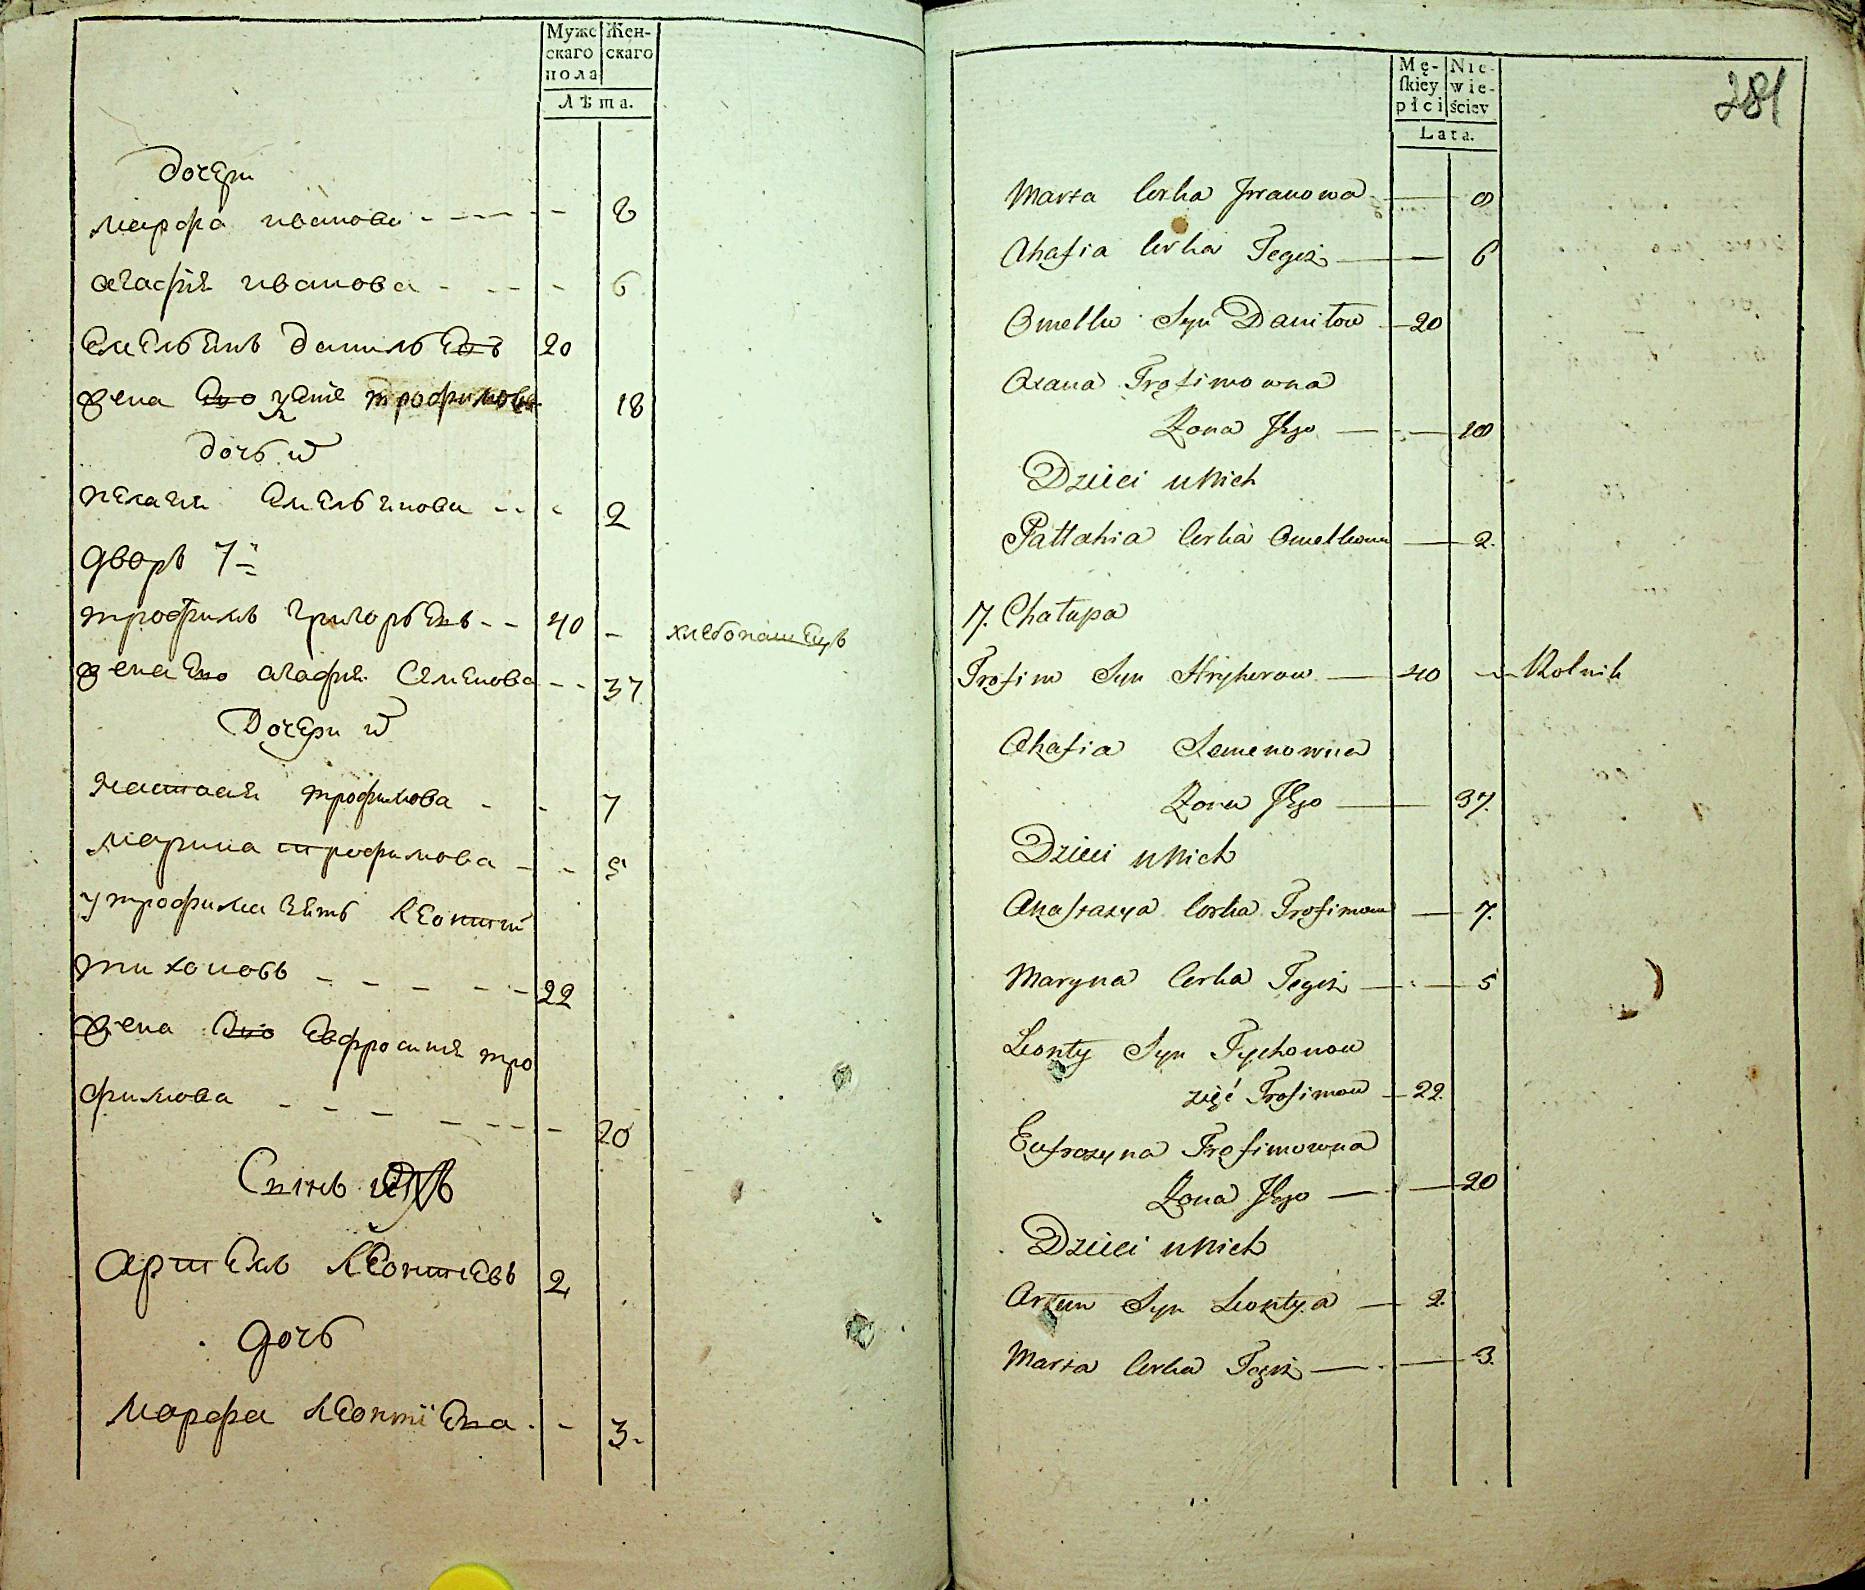 Муже
скаго
пола
Жен-
скаго
Лѣта.
дочери
марфа иванова - - - - - - 8
агафія иванова - - - - 6
Емельянъ данильевъ 20
жена его трофимова 18
дочь
пелагия Емельянова - - - 2
дворъ 7й
трофимъ григорьевъ - - 40 - хлебопашецъ
жена его агафия Семенова - - 37
Дочери
настасия трофимова - - 7
марина трофимова - - 5
у трофима зять леонтий
тихоновъ - - - - - 22
жена его Евфросиния тро
фимова - - - - - - - 20
Сынъ
артемъ леонтиевъ 2
дочь
марфа леонтіева - - 3.
281
Mę-
skiey
płci
Nie-
wie-
ściey
Lata.
Marta Corka Iwanowa — 8
Ahafia Corka Tegoż — 6
Omelko Syn Daniłow — 20
Oxana Trofimowna
Żona Jego — 18
Dzieci u Nich
Pallahia Corka Omelkowa — 2.
7. Chałupa
Trofim Syn Hryhorow — 40 — Rolnik
Ahafia Semenowna
Żona Jego — 37.
Dzieci u Nich
Anastazya Corka Trofimowa — 7.
Maryna Corka Tegoż — 5
Leonty Syn Tychonow
zięć Trofimow — 22.
Eufrozyna Trofimowna
Żona Jego — 20
Dzieci u Nich
Artem Syn Leontya — 2.
Marta Corka Tegoż — 3.